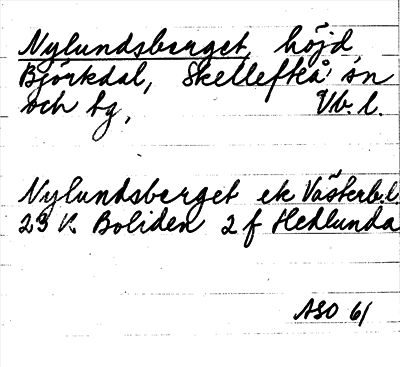 Nylundsberget, höjd,
Björkdal, Skellefteå sn
och tg, Vb. l.
Nylundsberget ek Västerb.l
23 K Boliden 2 f Hedlunda
ASO 61